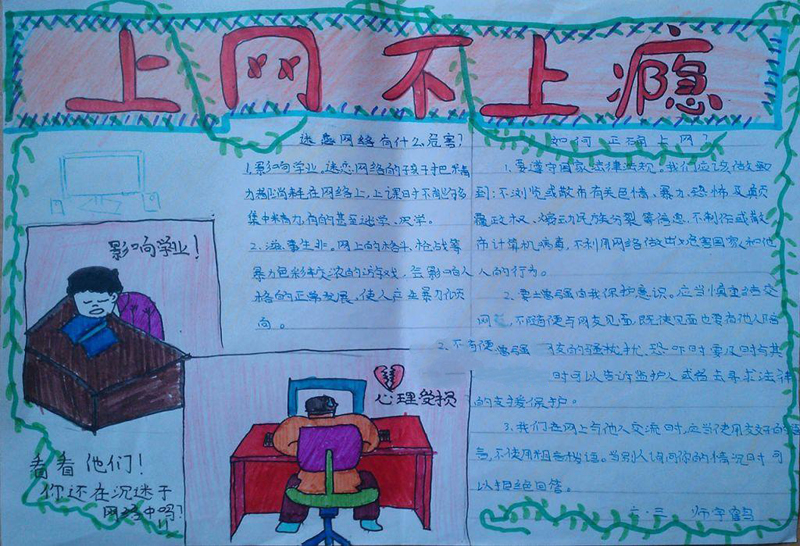 上网不上瘾
迷恋网络有什么危害？
1.影响学业，迷恋网络的孩子把精
力都消耗在网络上，上课时不能够
集中精力，有的甚至逃学、厌学。
2.滋事生非。网上的格斗、枪战等
暴力色彩较浓的游戏，会影响人
格的正常发展，使人产生暴力倾
向。
如何正确上网？
1.要遵守国家法律法规。我们应该做
到：不浏览或散布有关色情、暴力、恐怖及颠
覆政权、煽动民族分裂等信息，不制作或散
布计算机病毒，不利用网络做出危害国家和他
人的行为。
2.要增强自我保护意识。应当慎重结交
网友，不随便与网友见面，既使见面也要有他人陪
2.不随便 增强 骚扰、恐吓时要及时与其
时可以告诉监护人或者去寻求法律
的支援保护。
3.我们在网上与他人交流时，应当使用文好的语
言，不使用粗言秽语。当别人询问你的情况时可
以拒绝回答。
六·三
影响学业！
心理受损
看看他们！
你还在沉迷于
网络中吗？